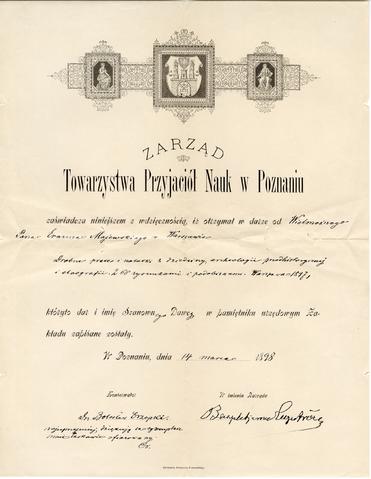 ZARZĄD
Towarzystwa Przyjaciół Nauk w Poznaniu
zaświadcza niniejszem z wdzięcznością, iż otrzymał w darze od Wielmożnego
Pana Erazma Majewskiego z Warszawy
Drobne prace i notatki z dziedziny archeologii przedhistorycznej
i etnografii. Z 68 rysunkami i podobiznami. Warszawa 1897,
któryto dar i imię Szanownego Dawcy, w pamiętniku urzędowym Za-
kładu zapisane zostały.
W Poznaniu, dnia 14 marca 1898
W imieniu Zarządu
Dr. Bolesław Erzepki